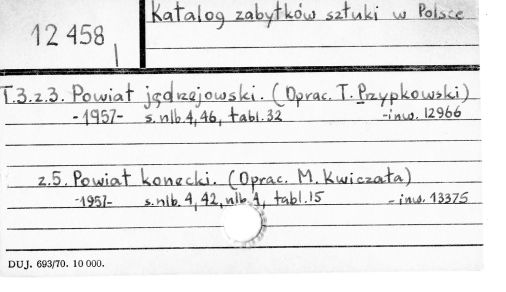 Katalog zabytków sztuki w Polsce
12 458
T.3.z.3. Powiat jędrzejowski. (Oprac. T. Przypkowski)
-1957- s. nlb. 4, 46, tabl. 32 -inw. 12966
z.5. Powiat konecki. (Oprac. M. Kwiczała)
-1957- s. nlb. 4, 42, nlb. 4, tabl. 15 -inw. 13375
DUJ. 693/70. 10 000.